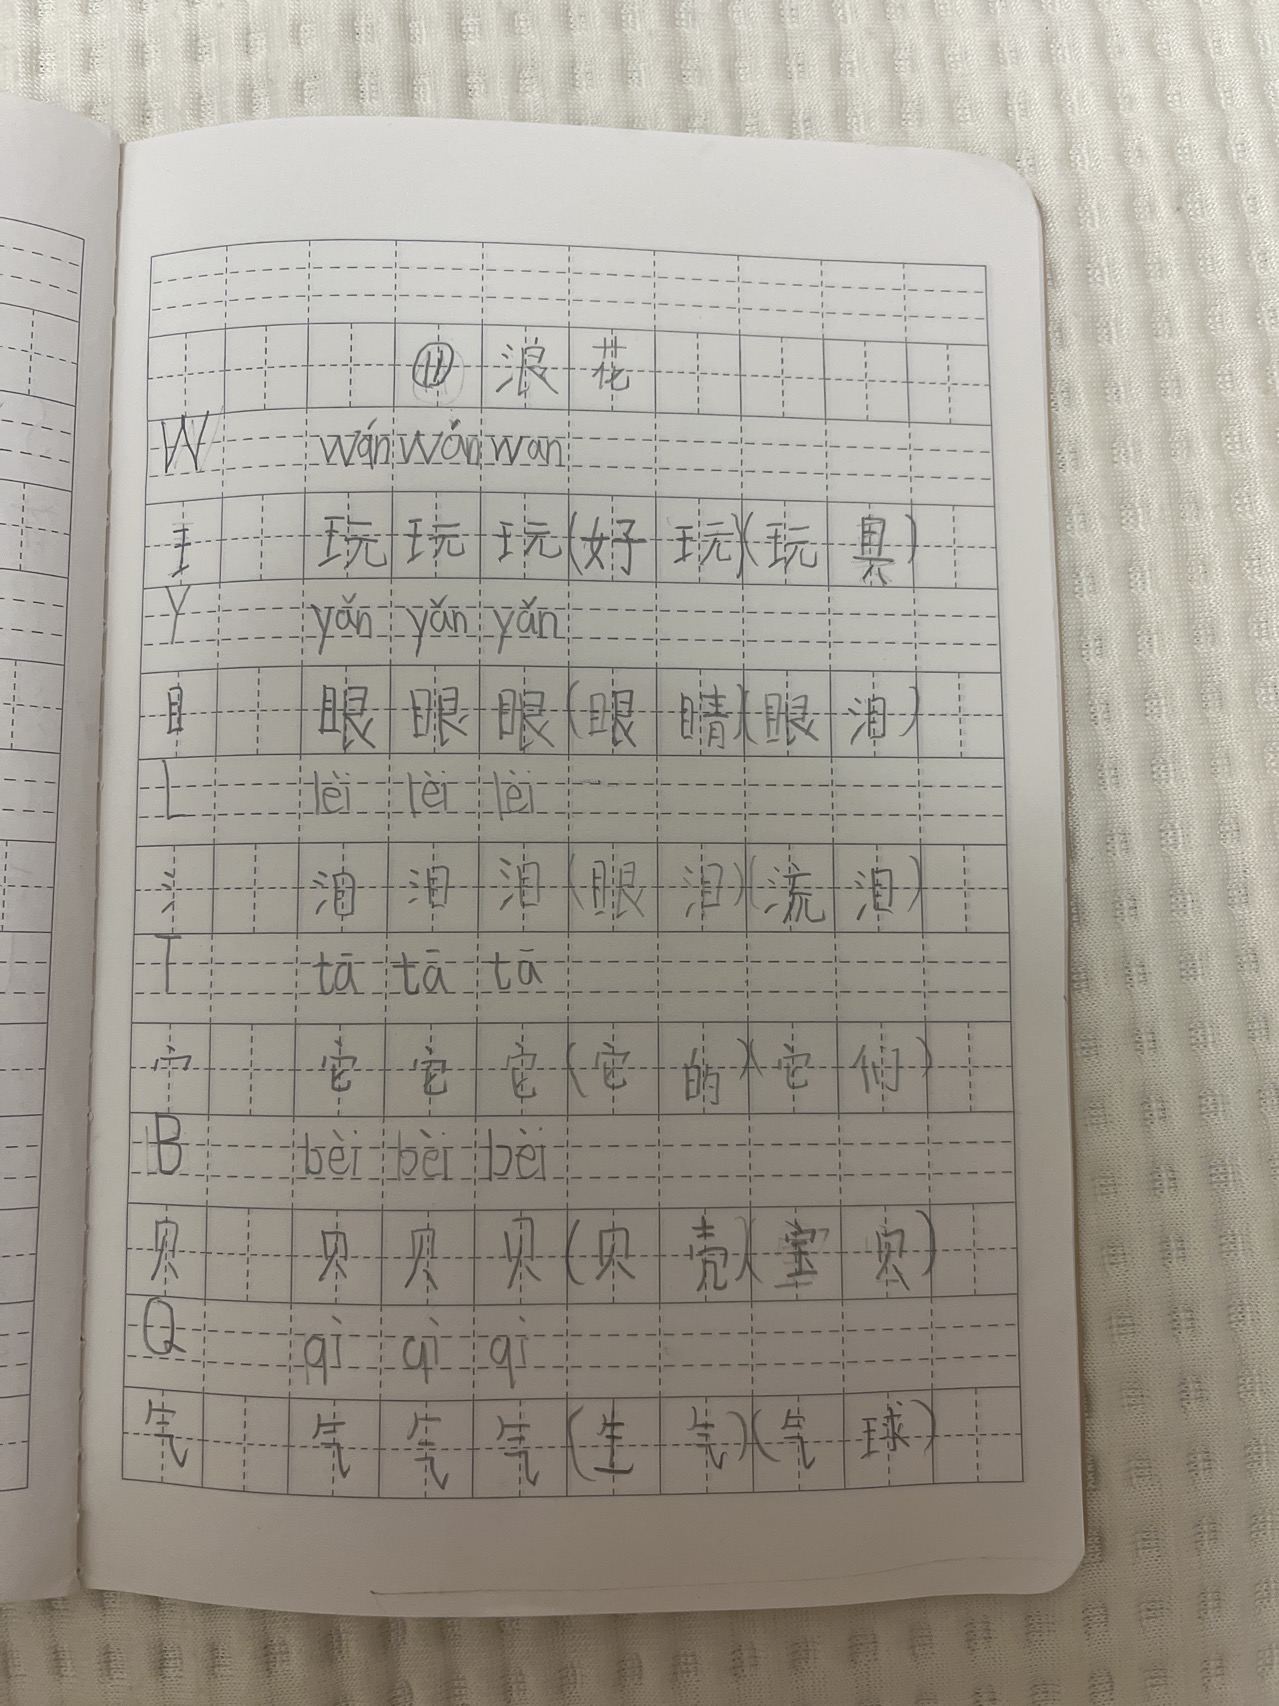 ⑪ 浪花
W wán wán wan
王 玩 玩 玩 (好玩)(玩具)
Y yǎn yǎn yǎn
目 眼 眼 眼 (眼睛)(眼泪)
L lèi lèi lèi
氵 泪 泪 泪 (眼泪)(流泪)
T tā tā tā
宀 它 它 它 (它的)(它们)
B bèi bèi bèi
贝 贝 贝 贝 (贝壳)(宝贝)
Q qì qì qì
气 气 气 气 (生气)(气球)